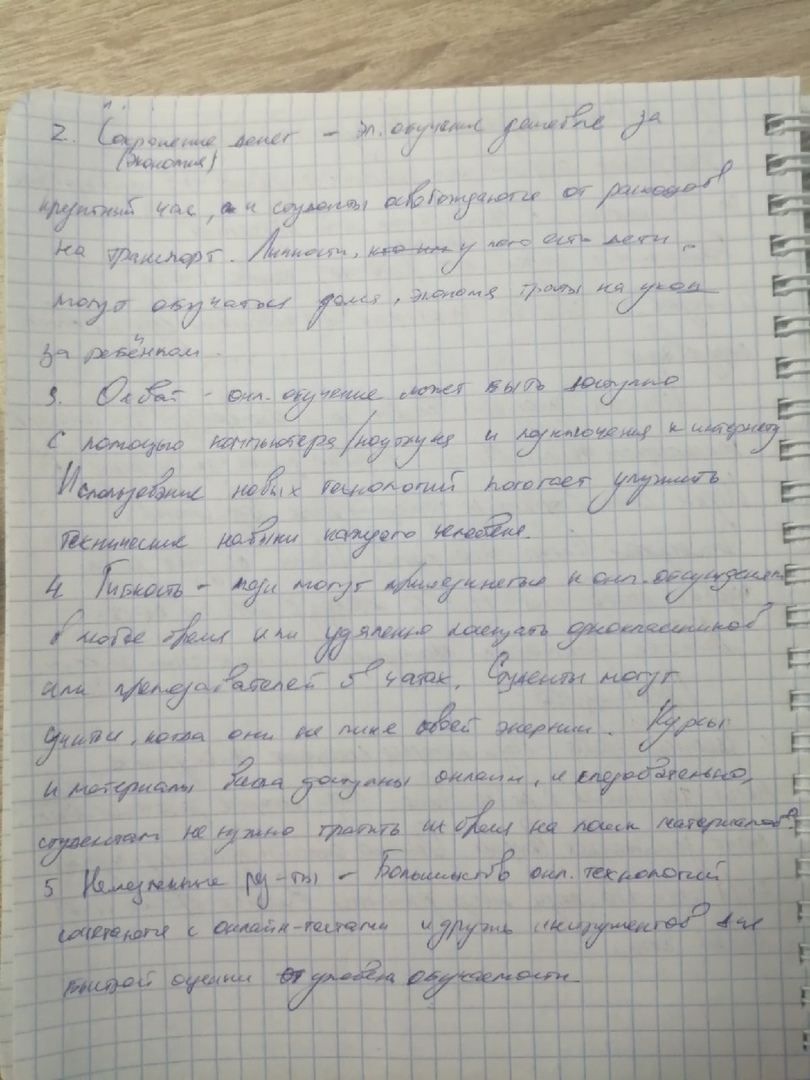 2. Сохранение денег – эл. обучение дешевле за
(экономия)
кредитный час, и студенты освобождаются от расходов
на транспорт. Личности, у кого есть дети,
могут обучаться дома, экономя траты на уход
за ребёнком.
3. Охват – онл. обучение может быть доступно
с помощью компьютера/ноутбука и подключения к интернету
Использование новых технологий помогает улучшить
технические навыки каждого человека.
4. Гибкость – люди могут присоединиться к онл. обсуждениям
в любое время или удаленно посещать одноклассников
или преподавателей в чатах. Студенты могут
учиться, когда они на пике своей энергии. Курсы
и материалы всегда доступны онлайн, и следовательно,
студентам не нужно тратить время на поиск материалов.
5 Немедленные рез-ты – Большинство онл. технологий
сочетаются с онлайн-тестами и других инструментов для
быстрой оценки уровня обучаемости